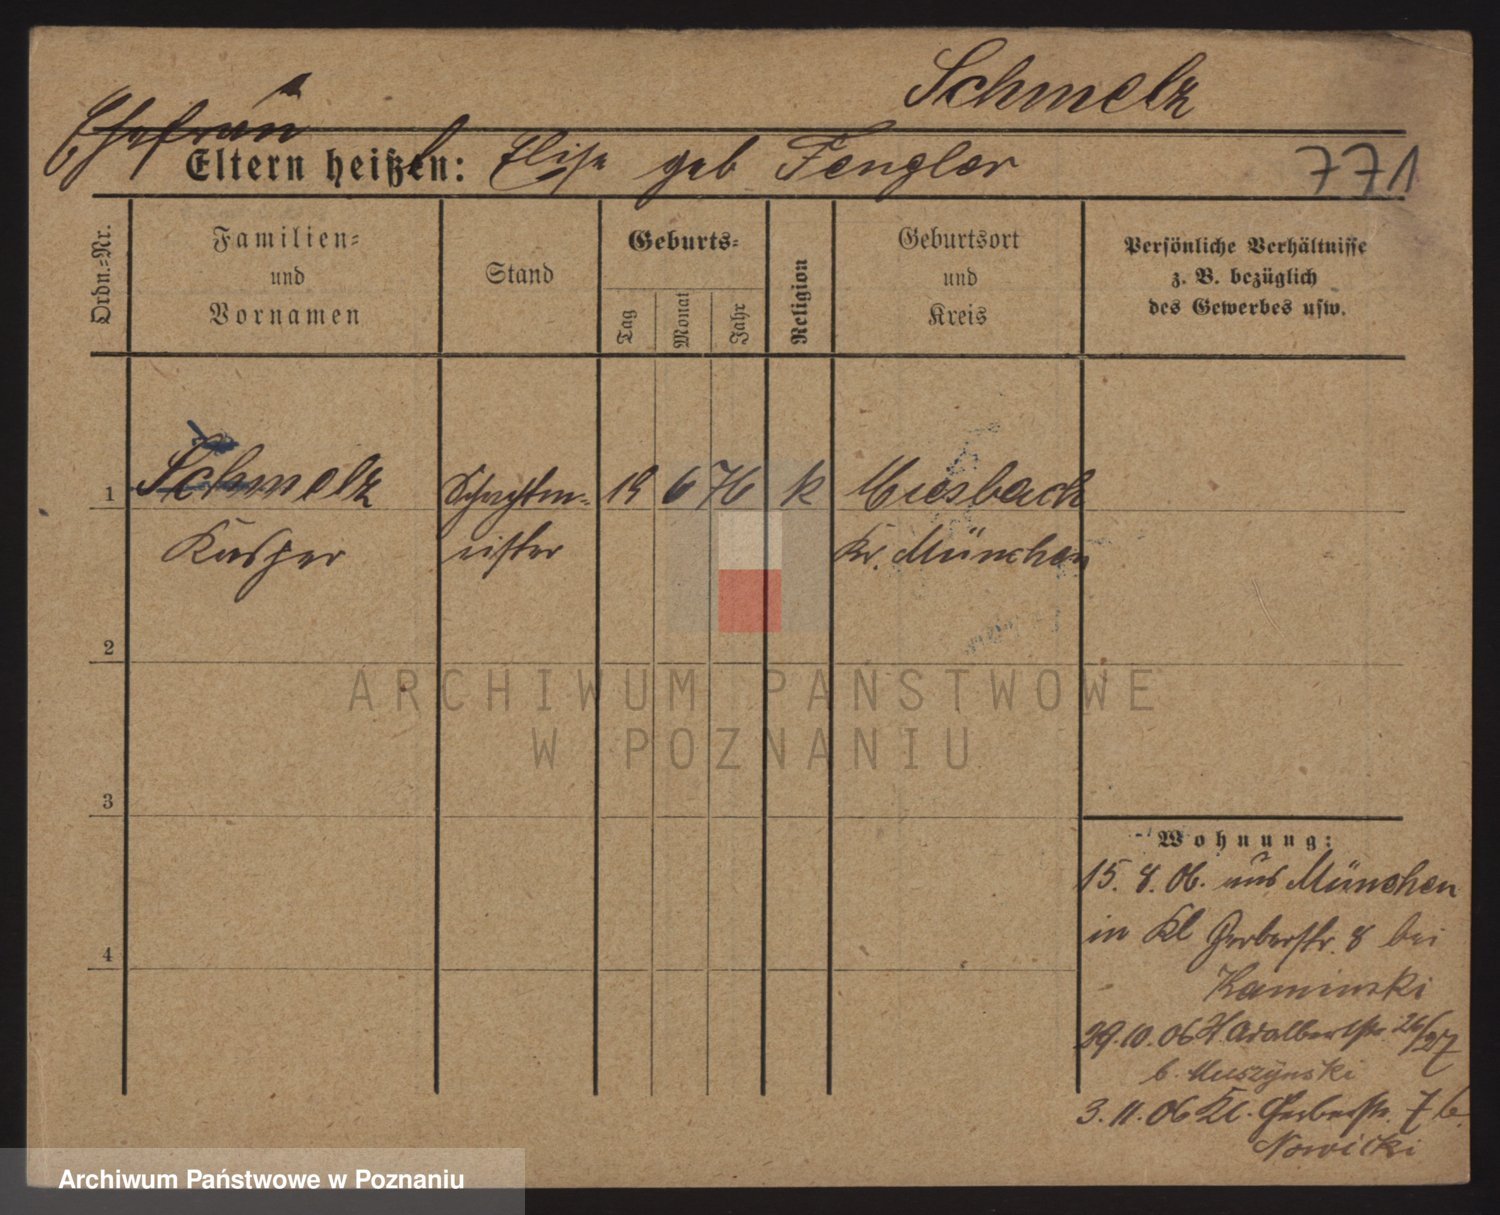 Schmelz
Ehefrau
Eltern heißen: Elise geb Fengler
771
Ordn.-Nr.
Familien-
und
Vornamen
Stand
Geburts-
Tag
Monat
Jahr
Religion
Geburtsort
und
Kreis
Persönliche Verhältnisse
z. B. bezüglich
des Gewerbes usw.
1 Schmelz Schachtm- 19 6 76 k Miesbach
Kasper eister Kr. München
2
3
4
ARCHIWUM PAŃSTWOWE
W POZNANIU
Wohnung:
15. 8. 06. aus München
in Kl Gerberstr. 8 bei
Kaminski
29.10.06 St. Adalbertstr 26/27
b. Muszynski
3.11.06 Kl. Gerberstr. 7 b.
Nowicki
Archiwum Państwowe w Poznaniu